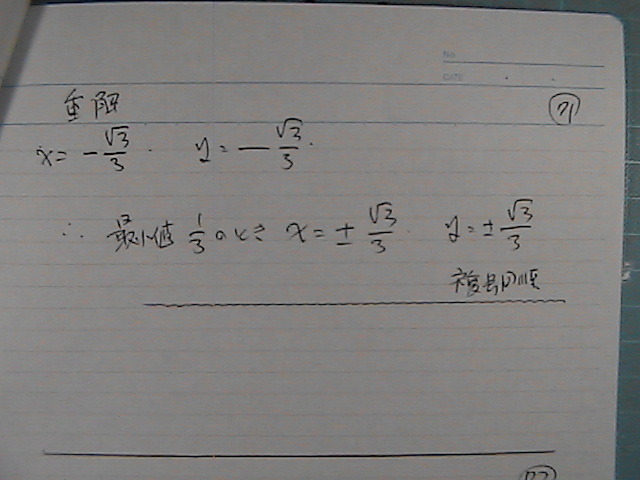 No.
DATE
重解
㉛
x = -√3/3. y = -√3/3.
∴ 最小値 1/3 のとき x = ±√3/3. y = ±√3/3
複号同順